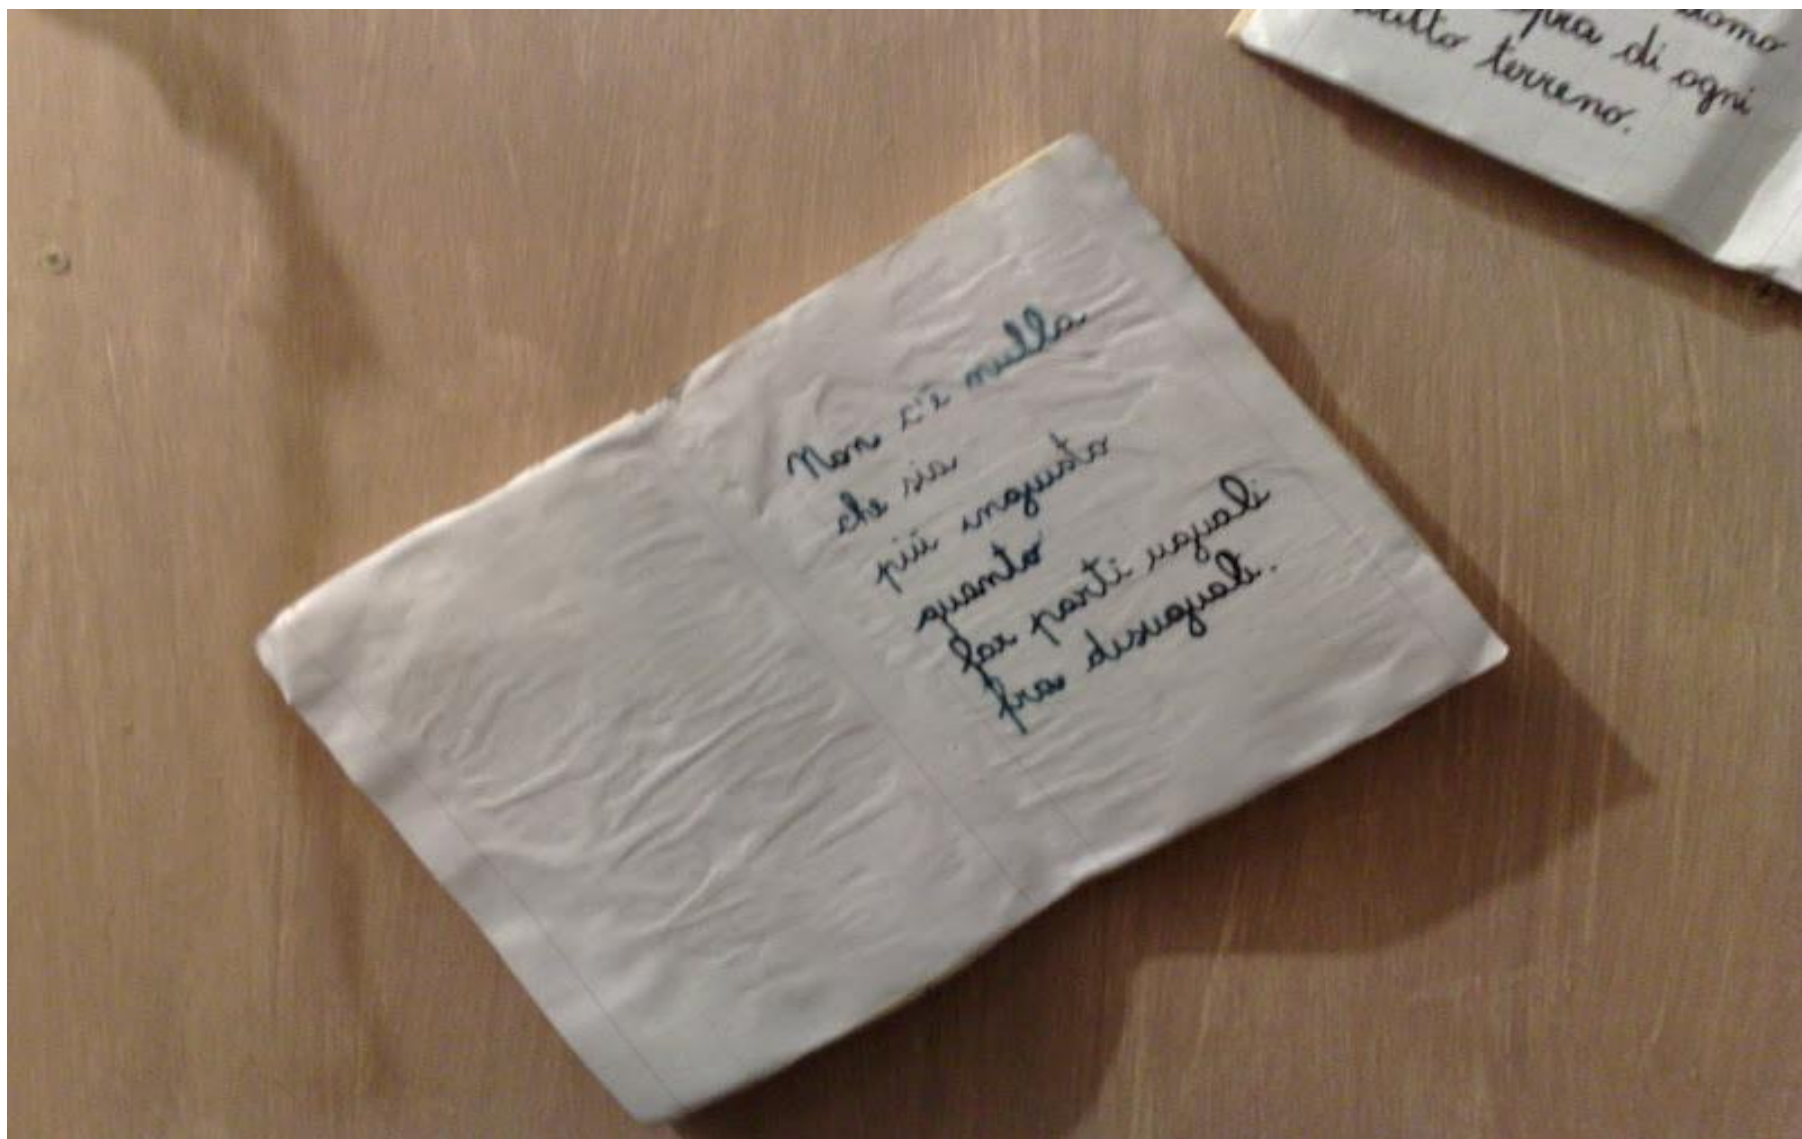 di ogni
terreno.
Non c'è nulla
che sia
più ingiusto
quanto
far parti uguali
fra disuguali.